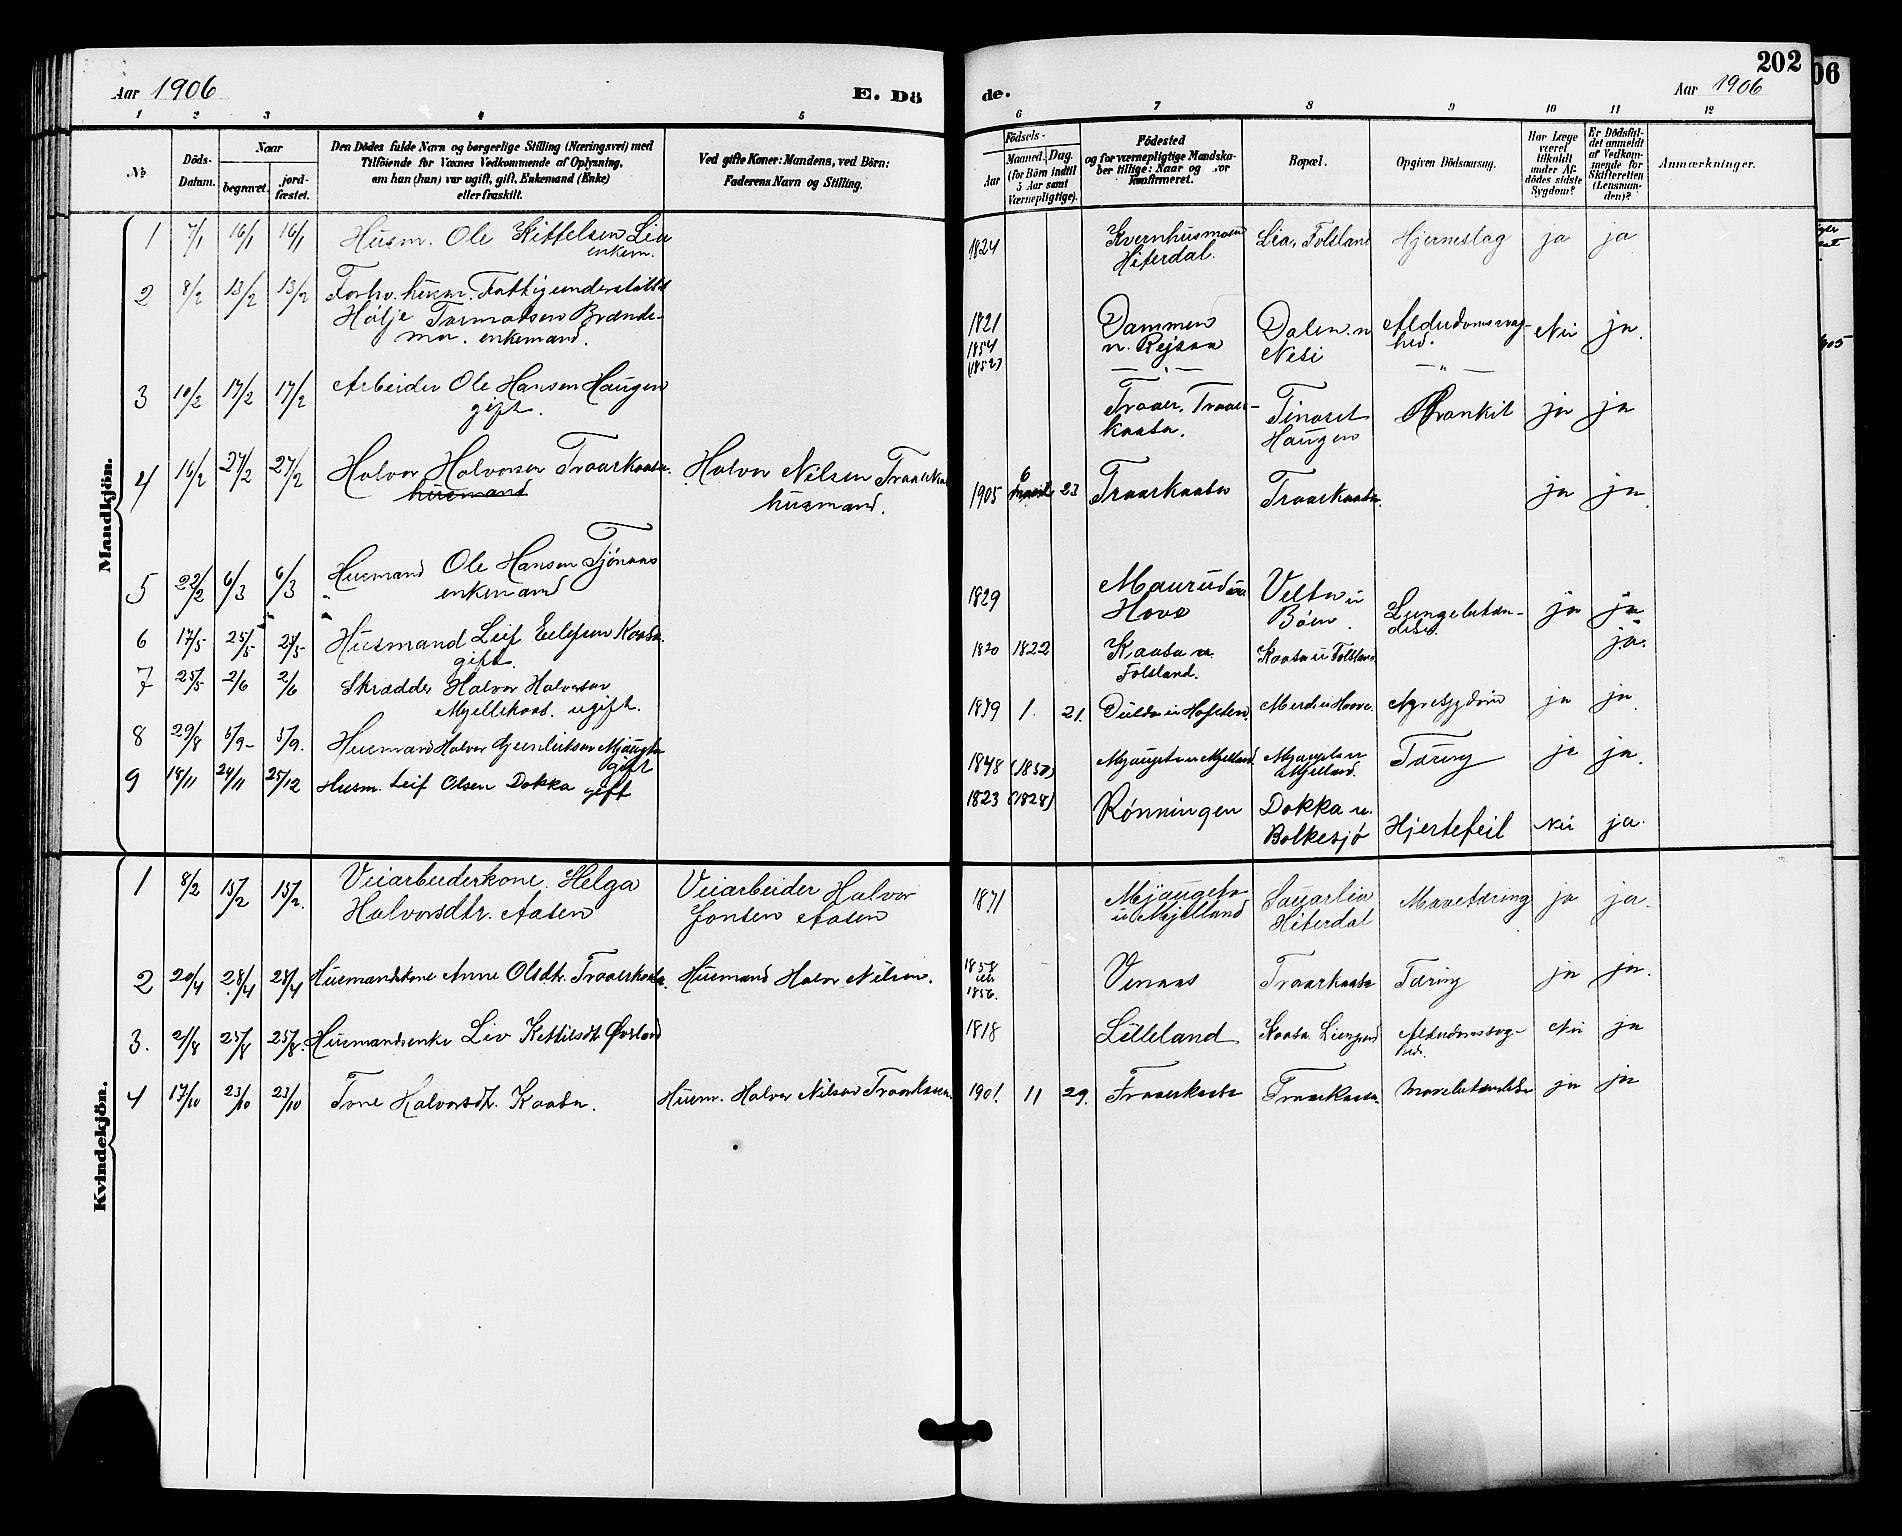 Aar 1906
E. Dö
de.
202
Aar 1906
06
1 2 3 4 5 6 7 8 9 10 11 12
№
Döds-
Datum.
Naar
begravet.
jord-
fæstet.
Den Dödes fulde Navn og borgerlige Stilling (Næringsvei) med
Tilföiende for Voxnes Vedkommende af Oplysning,
om han (hun) var ugift, gift, Enkemand (Enke)
eller fraskilt.
Ved gifte Koner: Mandens, ved Börn:
Faderens Navn og Stilling.
Födsels-
Aar
Maaned. Dag.
(for Börn indtil
5 Aar samt
Værnepligtige).
Födested
og for værnepligtige Mandska-
ber tillige: Naar og
Konfirmeret.
Bopæl.
Opgiven Dödsaarsag.
Har Læge
været
tilkaldt
under Af-
dödes sidste
Sygdom?
Er Dödsfal-
det anmeldt
af Vedkom-
mende for
Skifteretten
(Lensman-
den)?
Anmærkninger.
Mandkjön.
1 7/1 16/1 16/1 Husm. Ole Kittelsen Lia
enkem.
1824 Kvernhusmoen
Hiterdal.
Lia, Folsland Hjerneslag ja ja
2 8/2 13/2 13/2 Forhv. husm. Fattigunderstöttet
Hølje Tormodsen Brænde-
mo. enkemand.
1821
1854
(1852)
Dammen
u. Rejsaa
Dalen u
Nesi
Alderdomssvag-
hed.
Nei ja.
3 10/2 17/2 17/2 Arbeider Ole Hansen Haugen
gift.
Traaer, Traaer-
kaasa.
Tinoset
Haugen
ja ja
4 16/2 27/2 27/2 Halvor Halvorsen Traarkaasa.
husmand
Halvor Nilsen
husmand.
1905 6 23 Traarkaasa Traarkaasa. ja ja.
5 22/2 6/3 6/3 Husmand Ole Hansen Tjönaas
enkemand
1829 Hove
Velta u
Bøen.
Lungebetæn-
delse.
ja ja
6 17/5 25/5 25/5 Husmand Leif Eelefsen Kaasa.
gift.
1820 1822 Kaasa u.
Folsland.
Kaasa u Folsland. ja.
7 25/5 2/6 2/6 Skrædder Halvor Halvorsen
Myllekaas. ugift.
1879 1. 21. ja ja.
8 29/8 5/9 5/9. Husmand Halvor Mjaugeto
gift
1848 (1850) Mjaugeto u Mjelland Mjaugeto u
Mjelland.
Tæring ja ja.
9 18/11 24/11 25/12 Husm. Leif Olsen Dokka gift
1823 (1828) Rönningen Dokka u.
Bolkesjö
Hjertefeil Nei ja.
Kvindekjön.
1 8/2 15/2 15/2. Veiarbeiderkone. Helga
Halvorsdtr. Aasen
Veiarbeider Halvor
Jonsen Aasen
1871 Mjaugeto
u Mjelland
Sauarlia
Hiterdal
Mavetæring ja ja.
2 20/4 28/4 28/4 Husmandskone Anne Olsdtr. Traaerkaasa. Husmand Halvor Nilsen.
1858
1856.
Venaas Traarkaasa Tæring ja ja.
3. 21/8 25/8 25/8. Husmandsenke Liv Kettilsdt. Øvrland
1818 Lilleland Kaasa Alderdomssvag-
hed.
Nei ja
4 17/10 23/10 23/10 Tone Halvorsdt. Kaasa. Husm. Halvor Nilsen Traarkaasa.
1901. 11 29. Traaerkaasa Traarkaasa. Mavebetændelse ja ja